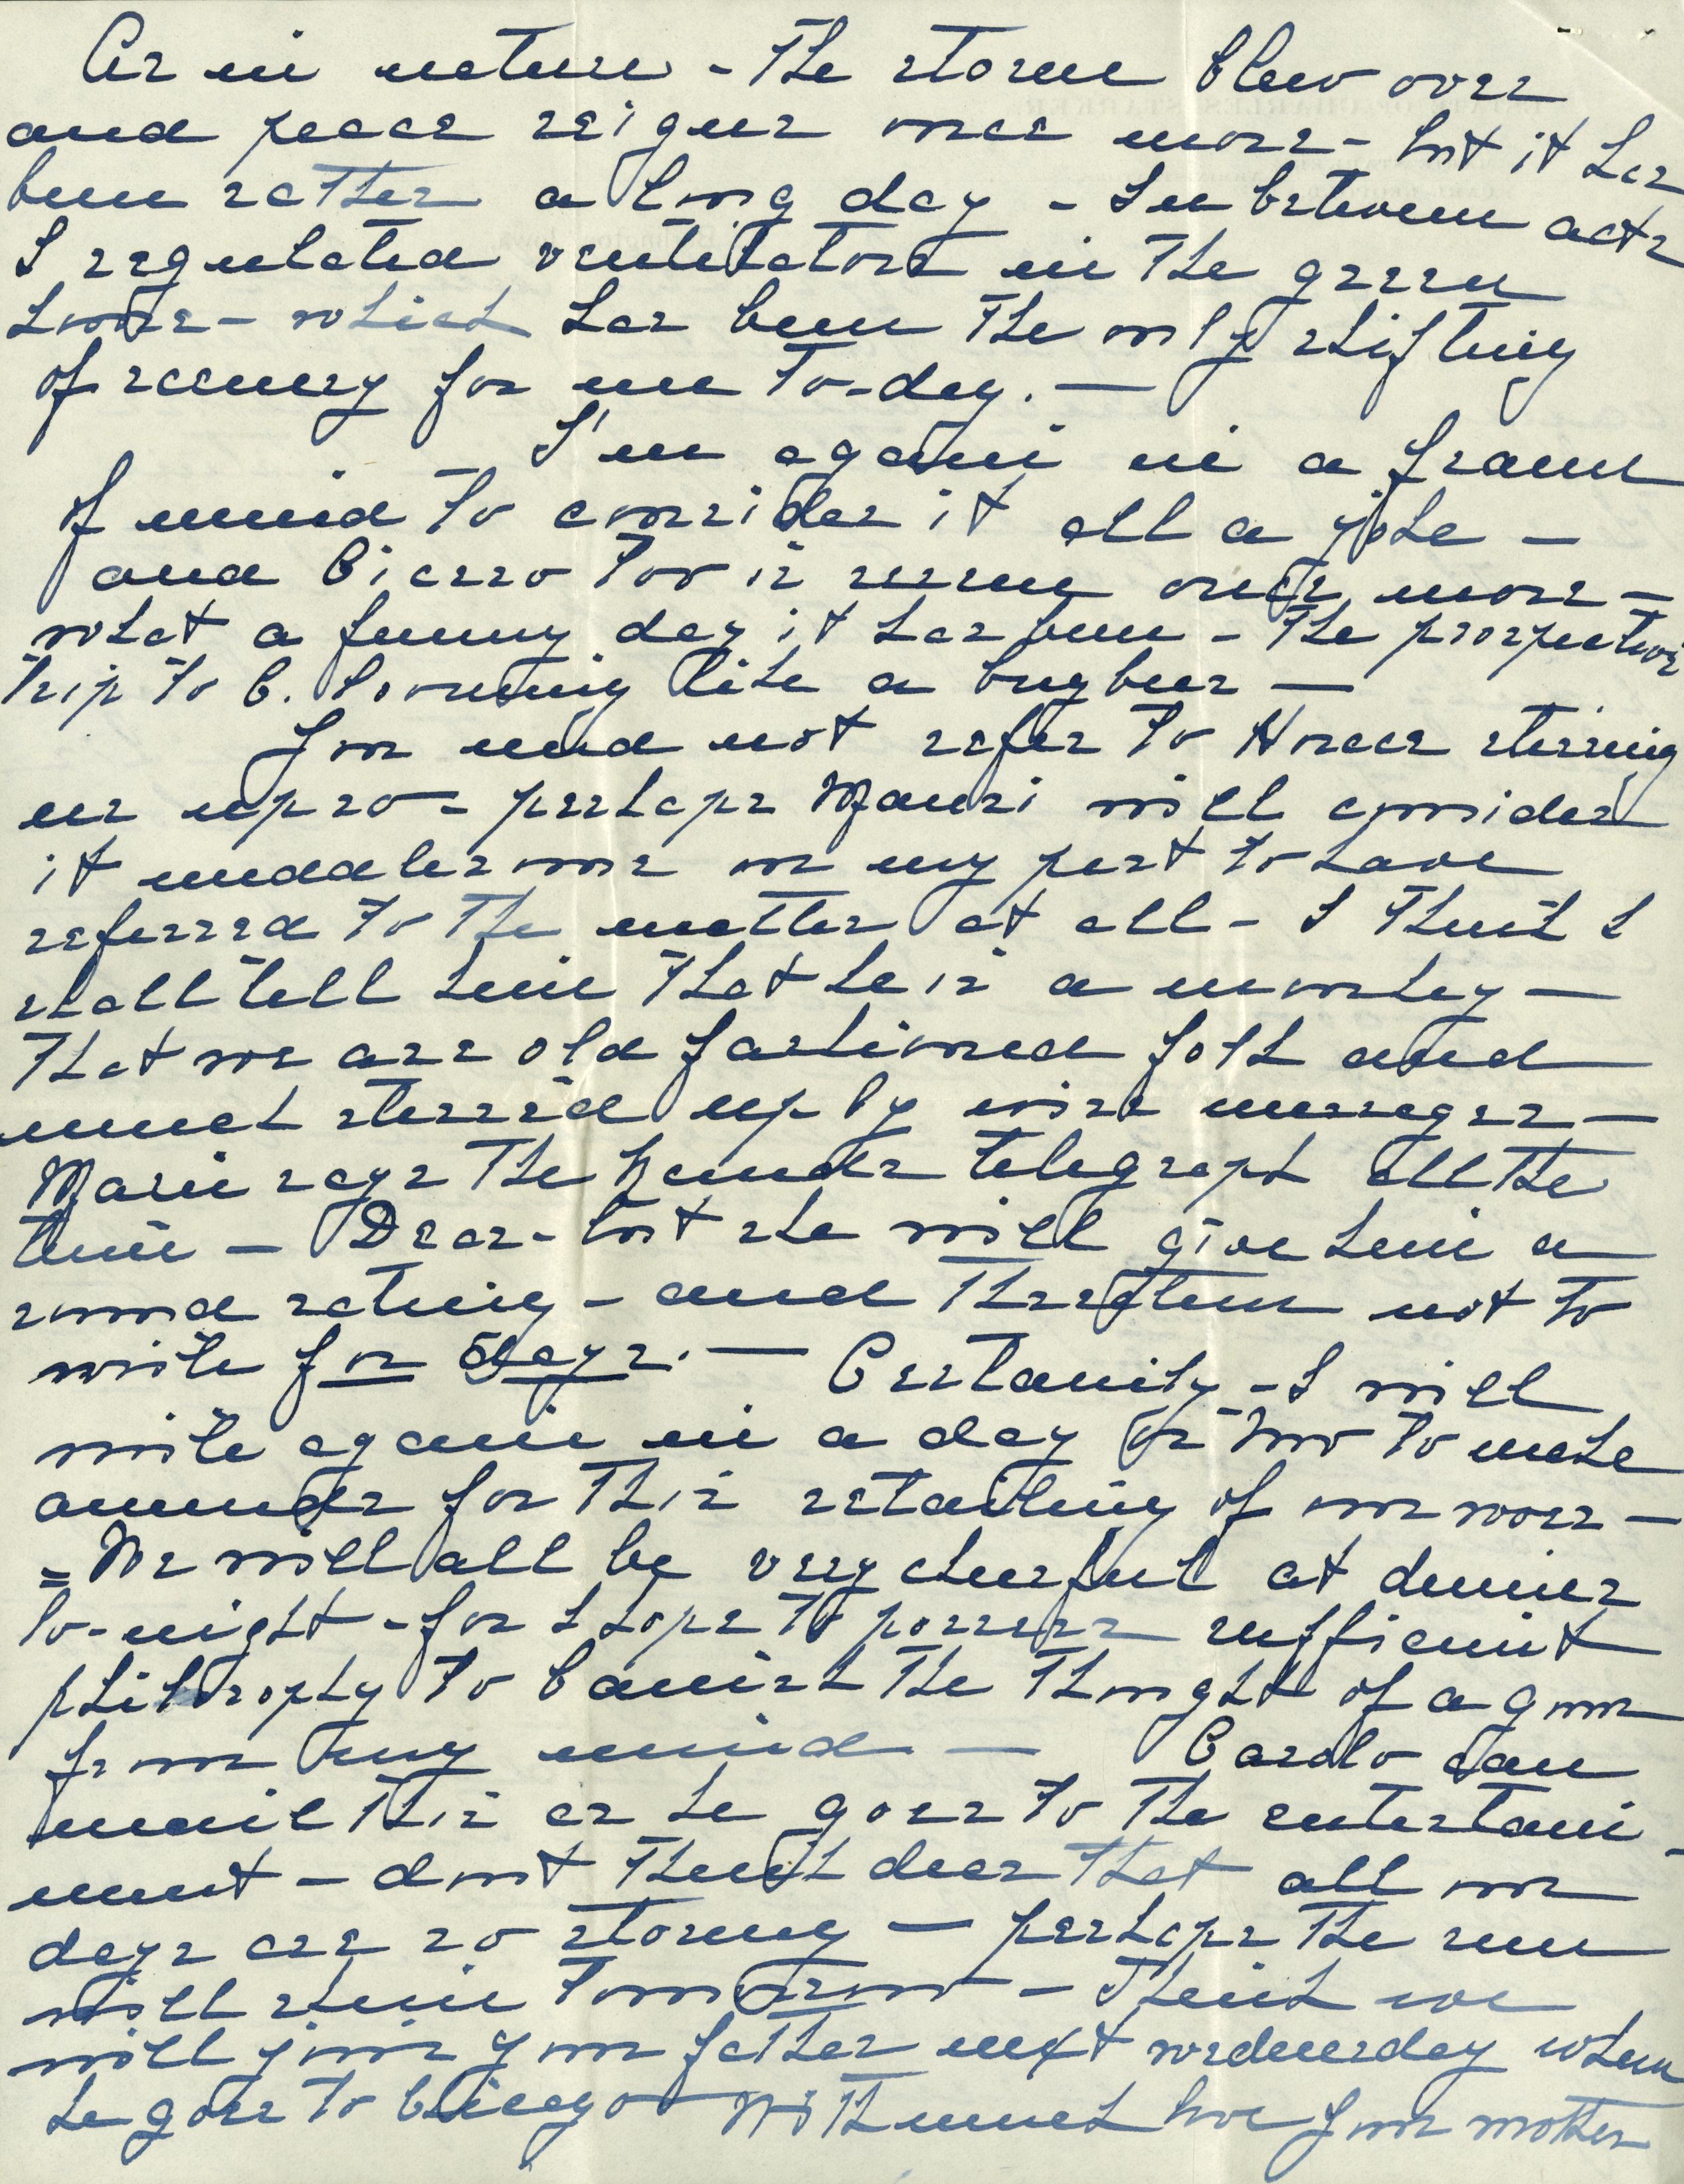 As in nature - The storm blew over
and peace reigns once more - but it has
been rather a long day - In between acts
I regulated ventilators in the green
house - which has been the only shifting
of scenery for me to-day. —
I'm again in a frame
of mind to consider it all a joke -
and Cicero too is serene once more -
what a funny day it has been - The prospective
trip to C. looming like a bugbear —
You need not refer to Horace stirring
us up so - perhaps Mauri will consider
it meddlesome on my part to have
referred to the matter at all - I think I
shall tell him that he is a monkey —
That we are old fashioned folk and
much stirred up by wire messages —
Marie says the Hands telegraph all the
time — Dear - but she will give him a
sound rating - and threaten not to
write for days. — Certainly - I will
write again in a day or two to make
amends for this retailing of our woes -
= We will all be very cheerful at dinner
to-night - for I hope to possess sufficient
philosophy to banish the thought of a gown
from my mind — Cardo can
mail this as he goes to the entertain-
ment - dont think dear that all our
days are so stormy — perhaps the sun
will shine tomorrow - I think we
will join your father next wednesday when
he goes to Chicago With much love Your mother